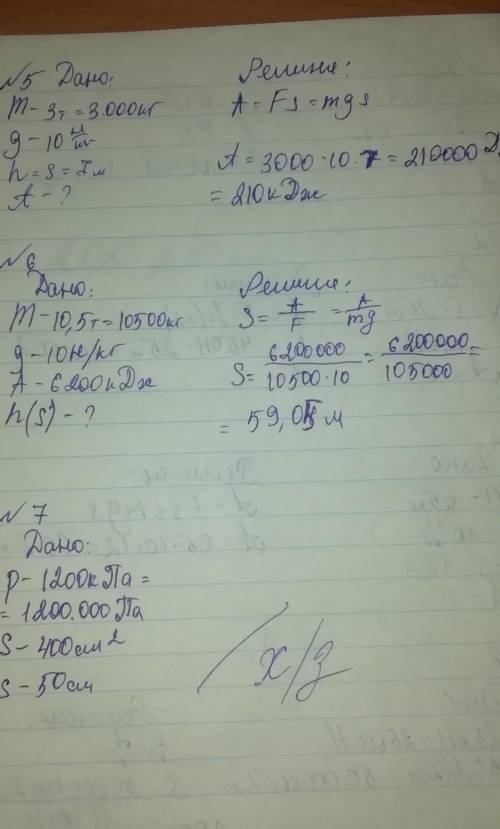 №5 Дано:
m - 3т = 3.000кг
g - 10 н/кг
h = s = 7м
A - ?
Решение:
A = Fs = mgs
A = 3000 · 10 · 7 = 210000 Д
= 210кДж
№6
Дано:
m - 10,5т = 10500кг
g - 10н/кг
A - 6200кДж
h(s) - ?
Решение:
S = A/F = A/mg
S = 6200000/10500·10 = 6200000/105000 =
= 59,05 м
№7
Дано:
p - 1200кПа =
= 1200.000Па
S - 400см²
s - 50см
/х/з